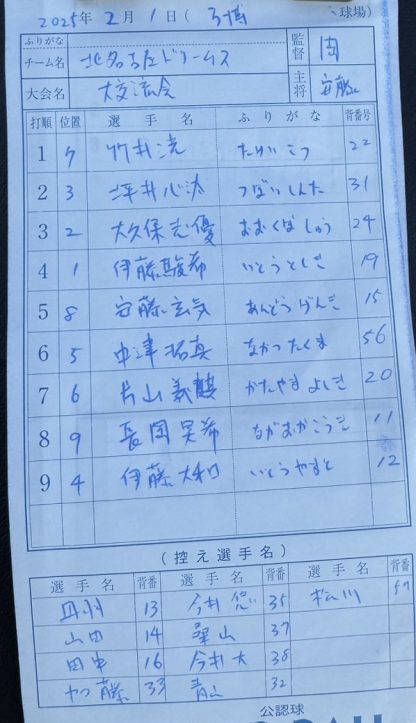 2025年 2月 1日( 球場)
ふりがな
チーム名 北名古屋ドリームス 監督
大会名 大交流会 主将 安藤
打順 位置 選手名 ふりがな 背番号
1 7 竹井 たけいこう 22
2 3 坪井心汰 つぼいしんた 31
3 2 大久保志優 おおくぼしゅう 24
4 1 伊藤駿希 いとうとしき 19
5 8 安藤玄気 あんどうげんき 15
6 5 中津拓真 なかつたくま 56
7 6 片山義麒 かたやまよしき 20
8 9 長岡昊希 ながおかこうき 11
9 4 伊藤大和 いとうやまと 12
(控え選手名)
選手名 背番 選手名 背番 選手名 背番
丹羽 13 今井悠 35 松川 57
山田 14 桑山 37
田中 16 今井大 38
加藤 33 青山 32
公認球